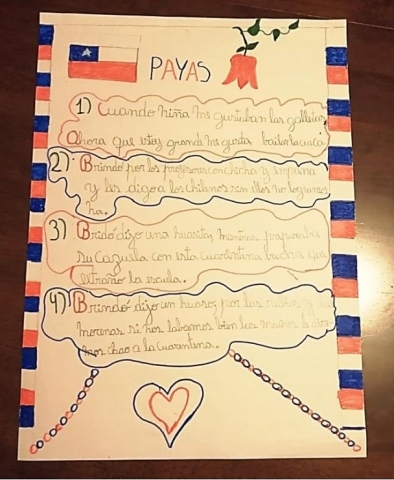 PAYAS
1) Cuando niña me gustaban las galletas
Ahora que estoy grande me gusta bailar la cueca
2) Brindo por los profesores con chicha y empana
y les digo a los chilenos sin ellos no logramos
na.
3) Brido dijo una huasita, mientras preparaba
su cazuela con esta cuarentena que
extraño la escuela.
4) Brindó dijo un huaso, por las rubias y
morenas si nos labamos bien las manos le
mos chao a la cuarentena.